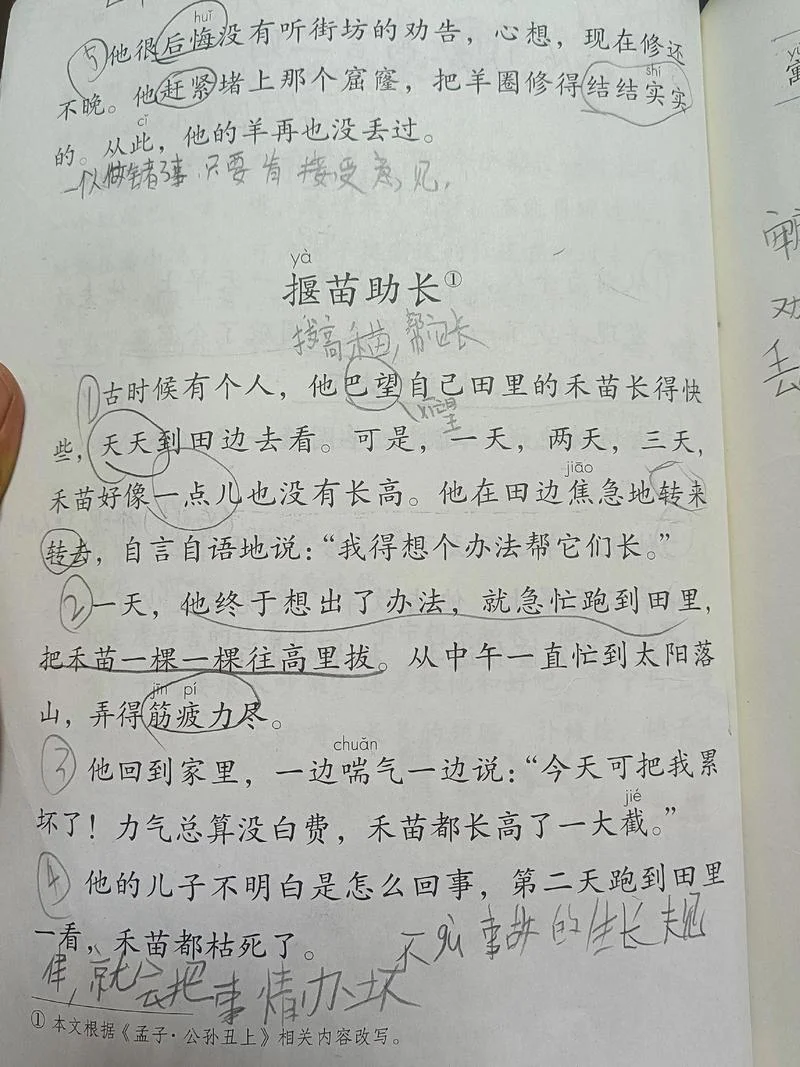 huǐ
⑤他很后悔没有听街坊的劝告，心想，现在修还
shí
不晚。他赶紧堵上那个窟窿，把羊圈修得结结实实
cǐ
的。从此，他的羊再也没丢过。
做错了事，只要肯接受意见，
yà
揠苗助长①
拔高禾苗，帮它长
①古时候有个人，他巴望自己田里的禾苗长得快
盼望
些，天天到田边去看。可是，一天，两天，三天，
jiāo
禾苗好像一点儿也没有长高。他在田边焦急地转来
转去，自言自语地说：“我得想个办法帮它们长。”
②一天，他终于想出了办法，就急忙跑到田里，
把禾苗一棵一棵往高里拔。从中午一直忙到太阳落
jīn pí
山，弄得筋疲力尽。
chuǎn
③他回到家里，一边喘气一边说：“今天可把我累
jié
坏了！力气总算没白费，禾苗都长高了一大截。”
④他的儿子不明白是怎么回事，第二天跑到田里
一看，禾苗都枯死了。
不顾事物的生长规
律，就会把事情办坏
① 本文根据《孟子·公孙丑上》相关内容改写。
劝
丢